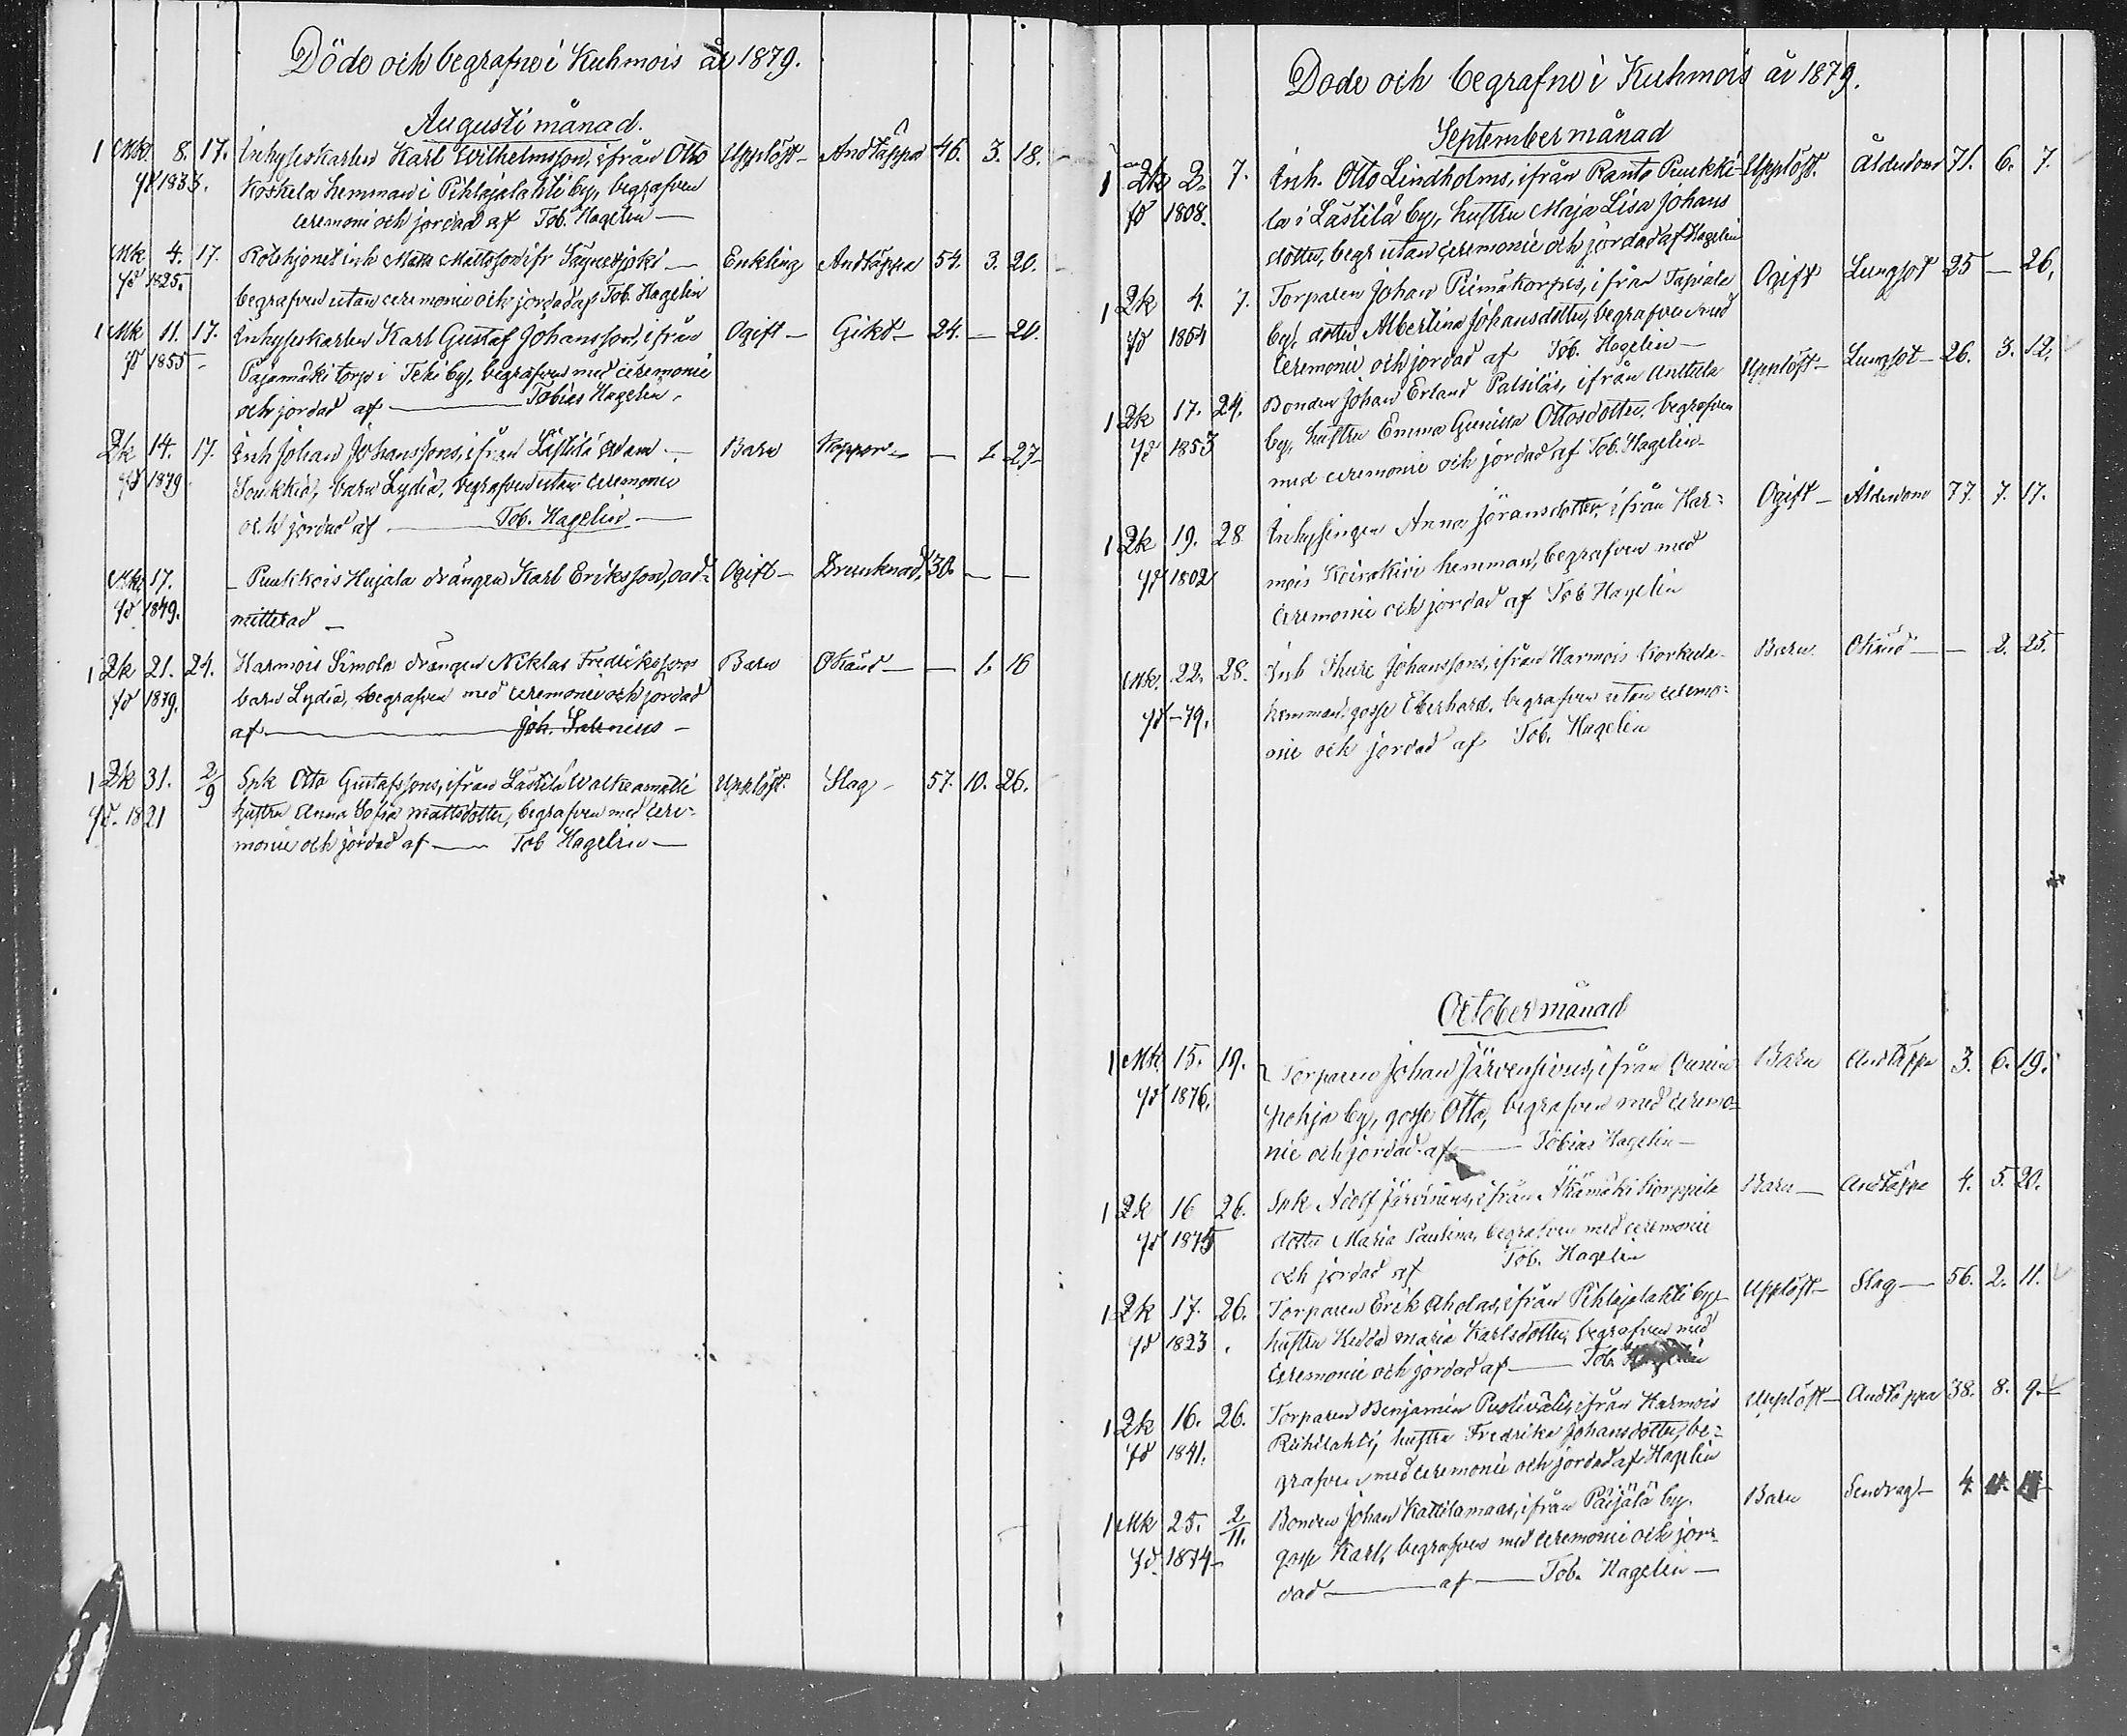 Döde och begrafne i Kuhmois år 1879.
Augusti månad.
1 Mk 8. 17. Inhyseskarlen Karl Wilhelmsson, ifrån Otto Upplöst Andtäppa 46. 3. 18.
fd 1833. Koskela hemman i Pihlajalahti by, begrafven
ceremoni och jordad af Tob. Hagelin
Mk 4. 17. Rotehjonet inh Matts Mattsson ifr Enkling Andtäppa 54. 3. 20.
fd 1825. begrafven utan ceremonie och jordad af Tob. Hagelin
1 Mk 11. 17. Inhyseskarlen Karl Gustaf Johansson, ifrån Ogift Gikt 24. — 20.
fd 1855 Pajamäki torp i Tehi by, begrafven med ceremonie
och jordad af Tobias Hagelin.
Qk 14. 17. Inh Johan Johanssons, ifrån Lästilä Adam Barn Koppor — 1. 27
fd 1879 Soukkio, barn Lydia, begrafven utan ceremonie
och jordad af Tob. Hagelin
Mk 17. Puukkois Hujala drängen Karl Eriksson, oad- Ogift Drunknad 30. — —
fd 1849. mitterad
1 Qk 21. 24. Harmois Simola drängen Niklas Fredrikssons Barn Okänd — 1. 16
fd 1879. barn Lydia, begrafven med ceremonie och jordad
af Joh. Salenius
1 Qk 31. 2/9 Spk Otto Gustafssons, ifrån Lästilä Walkeamäki Upplöst. Slag 57. 10. 26.
fd. 1821 hustru Anna Sofia Mattsdotter, begrafven med cere-
monie och jordad af Tob Hagelin
Döde och begrafne i Kuhmois år 1879.
September månad
1 Qk 2. 7. Inh. Otto Lindholms, ifrån Ranta Puukki- Upplöst. Ålderdom 71. 6. 7.
fd 1808. la i Lästilä by, hustru Maja Lisa Johans
dotter, begr utan ceremonie och jordad af Hagelin
1 Qk 4. 7. Torparen Johan Piimäkorpis, ifrån Tapiala Ogift Lungsot 25 — 26.
fd 1854 by, dotter Albertina Johansdotter, begrafven med
Ceremonie och jordad af Tob. Hagelin
1 Qk 17. 24. Bonden Johan Erland Palsiläs, ifrån Anttula Upplöst Lungsot 26. 3. 12.
fd 1853 by, hustru Emma Gunilla Ottosdotter, begrafven
med ceremonie och jordad af Tob. Hagelin
1 Qk 19. 28 Inhysingen Anna Jöransdotter, ifrån Har- Ogift Ålderdom 77. 7. 17.
fd 1802 mois Koivakivi hemman, begrafven med
Ceremonie och jordad af Tob Hagelin
Mk. 22. 28. Inh Thure Johanssons, ifrån Harmois Korkula Barn Okänd — 2. 25.
fd -79. hemman, gosse Eberhard, begrafven utan ceremo-
nie och jordad af Tob. Hagelin
October månad
1 Mk 15. 19. Torparen Johan Järvensivus, ifrån Barn Andtäppa 3. 6. 19.
fd 1876. pohja by, gosse Otto, begrafven med ceremo-
nie och jordad af Tobias Hagelin
1 Qk 16 26. Spk Adolf Järvinens, ifrån Korppila Barn Andtäppa 4. 5. 20.
fd 1875 dotter Maria Paulina, begrafven med ceremonie
och jordad af Tob. Hagelin
1 Qk 17. 26. Torparen Erik Aholas, ifrån Pihlajalahti by, Upplöst Slag 56. 2. 11.
fd 1823. hustru Hedda Maria Karlsdotter, begrafven med
Ceremonie och jordad af Tob. Hagelin
1 Qk 16. 26. Torparen Benjamin ifrån Harmois Upplöst Andtäppa 38. 8. 9.
fd 1841. Riihilahti, hustru Fredrika Johansdotter, be-
grafven med ceremonie och jordad af Hagelin
1 Mk 25. 2/11. Bonden Johan Kattilamaas, ifrån Päijälä by, Barn Sendrag 4.
fd. 1874 gosse Karl, begrafven med ceremonie och jor-
dad af Tob. Hagelin